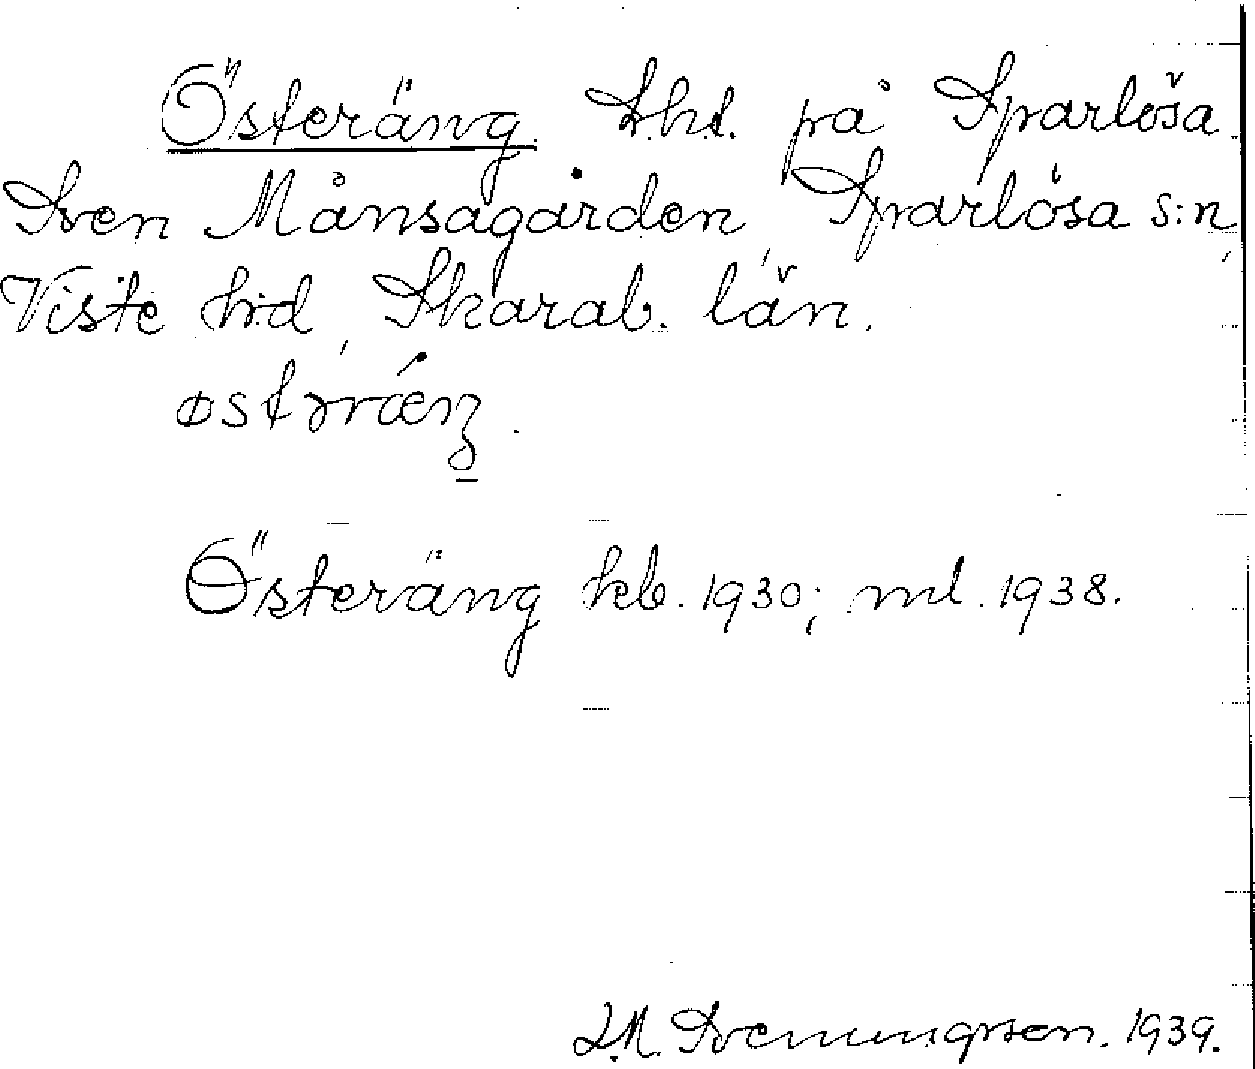 Österäng. Lht. på Sparlösa
Sven Månsagården, Sparlösa s:n,
Viste hd, Skarab. län.
østəræ̀ŋ.
Österäng kb. 1930; ml. 1938.
L.M. Svenungsson. 1939.